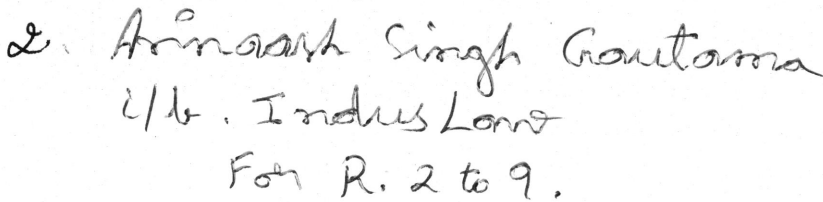 2. Avinash Singh Gautama
i/b. IndusLaw
For R. 2 to 9.